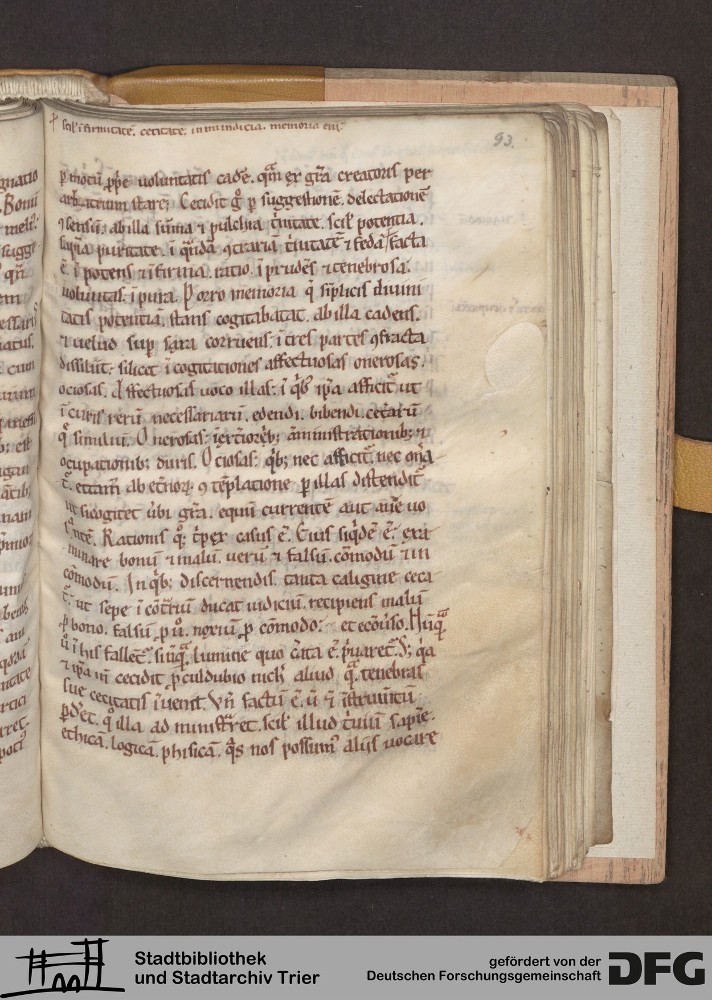 scil' ī firmitatē. cecitatē. inmundicia. memoria eni᷒
93.
gnatio
Boni
sugge
qm̄
cum
p̱ motū ꝓpͥe voluntatis cadē. qm̄ ex grā creatoris per
arbitrium stare. Cecidit gͦ p̱ suggestionē. delectationē
ꝯsensū. ab illa sūma ⁊ pulchra tͥnitate. scil' potentia.
sapīa puritate. ī quādā ꝯtrariā tͥnitatē ⁊ fedā facta
ē. īpotens ⁊ īfirma. ratio. īprudēs ⁊ tenebrosa.
voluntas. īpura. Porro memoria q̄ sīplicis diuini
tatis potentiā. stans cogitabatat. ab illa cadens.
⁊ velud sup saxa corruens. ī tres partes ꝯfracta
dissiluit. silicet ī cogitaciones affectuosas onerosas.
ociosas. Affectuosas uoco illas. ī qͥbꝫ ip̄a afficit̄ ut
ī curis rerū necessariarū. edendi. bibendi. cet̄arū
qꝫ similiū. Onerosas. ī exͥoribꝫ āministrationibꝫ ⁊
ocupationibꝫ duris. Ociosas. qͥbꝫ nec afficit̄. nec oñā
t̄. ettam̄ ab et̄norꝝ ꝯtēplatione p̱ illas distendit̄
ut si cogitet ubi grā. equū currentē aut auē uo
lātē. Rationis qꝫ. tͥpex casus ē. Eius siqͥdē ē. exa
minare bonū ⁊ malū. uerū ⁊ falsū. cōmodū ⁊ in
cōmodū. In qͥbꝫ discernendis. tanta caligine ceca
t̄. ut sepe ī cōt̄riū ducat iudiciū. recipiens malū
p bono. falsū p uͦ. noxiū p cōmodo. et ecōuͥso. Nūqͣ
ī his fallet̄. si nūqͣ lumine quo cͥata ē. pͥuaret̄. Sꝫ qͣ
⁊ ip̄a in cecidit. ꝓculdubio nichil aliud qͣ tenebras
sue cecitatis īuenit. Vn̄ factū ē. ut ⁊ īstrumtū
p̱dēt. qͦ illa administraret. scil' illud tͥuiū sapīe.
ethicā. logicā. phisicā. qͣs nos possumꝰ aliis uocare
Stadtbibliothek
und Stadtarchiv Trier
gefördert von der
Deutschen Forschungsgemeinschaft
DFG